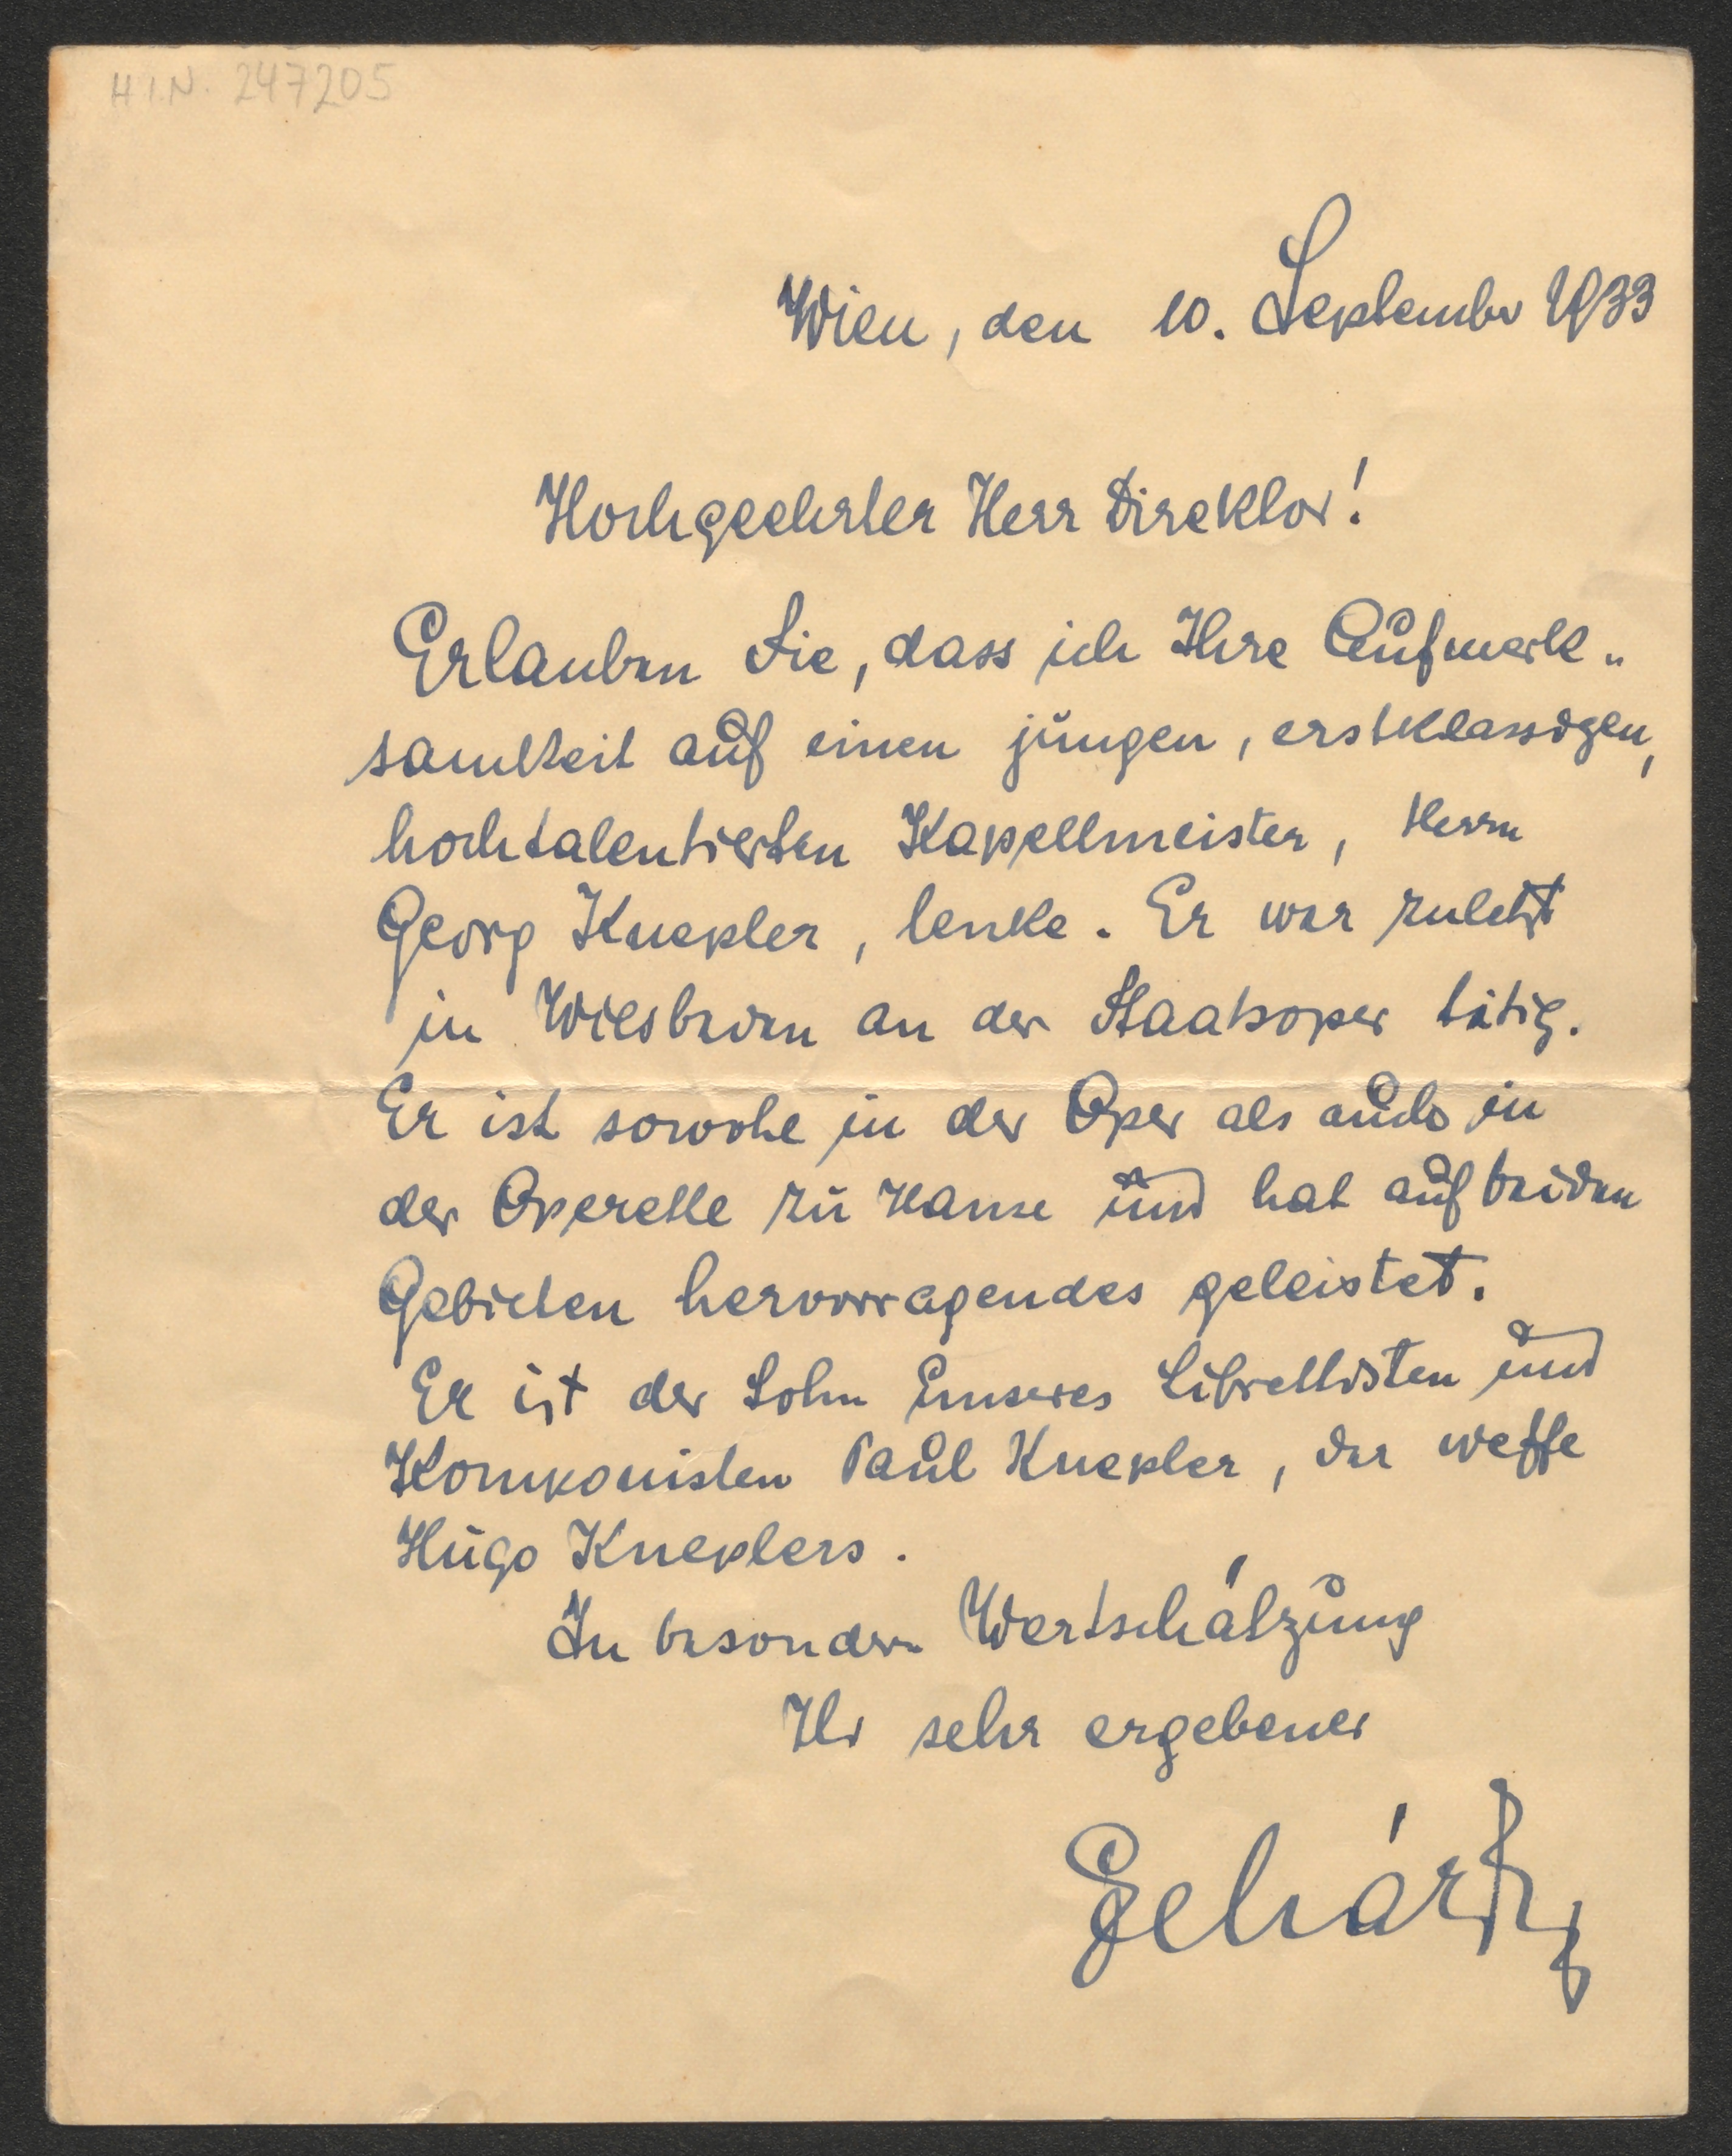 H.I.N. 247205
Wien, den 10. September 1933
Hochgeehrter Herr Direktor!
Erlauben Sie, dass ich Ihre Aufmerk-
samkeit auf einen jungen, erstklassigen,
hochtalentierten Kapellmeister, Herrn
Georg Knepler, lenke. Er war zuletzt
in Wiesbaden an der Staatsoper tätig.
Er ist sowohl in der Oper als auch in
der Operette zu Hause und hat auf beiden
Gebieten hervorragendes geleistet.
Er ist der Sohn unseres Librettisten und
Komponisten Paul Knepler, der Neffe
Hugo Kneplers.
In besonderer Wertschätzung
Ihr sehr ergebener
Lehár